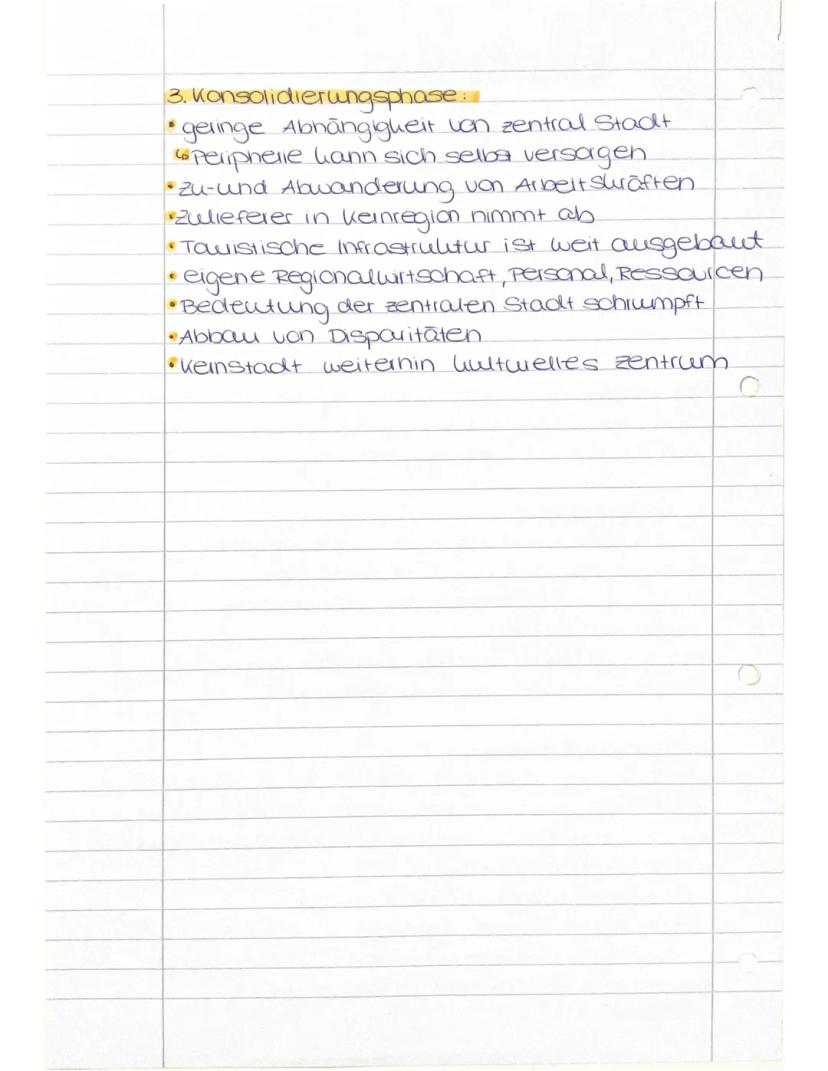 3. Konsolidierungsphase:
• geringe Abhängigkeit von zentral Stadt
↳ Peripherie kann sich selbst versorgen
• zu-und Abwanderung von Arbeitskräften
• Zulieferer in Kernregion nimmt ab
• Touristische Infrastruktur ist weit ausgebaut
• eigene Regionalwirtschaft, Personal, Ressourcen
• Bedeutung der zentralen Stadt schrumpft
• Abbau von Disparitäten
• Kernstadt weiterhin kulturelles zentrum